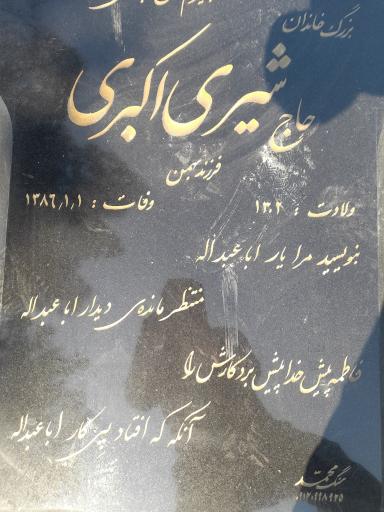 بزرگ خاندان
حاج شیری اکبری
فرزند بهمن
ولادت : ۱۳۰۲ وفات : ۱۳۸۶/۱/۱
بنویسید مرا یار اباعبداله
منتظر مانده‌ی دیدار اباعبداله
فاطمه پیش خدا پیش برد کارش را
آنکه که افتاد پی کار اباعبداله
سنگ محمد